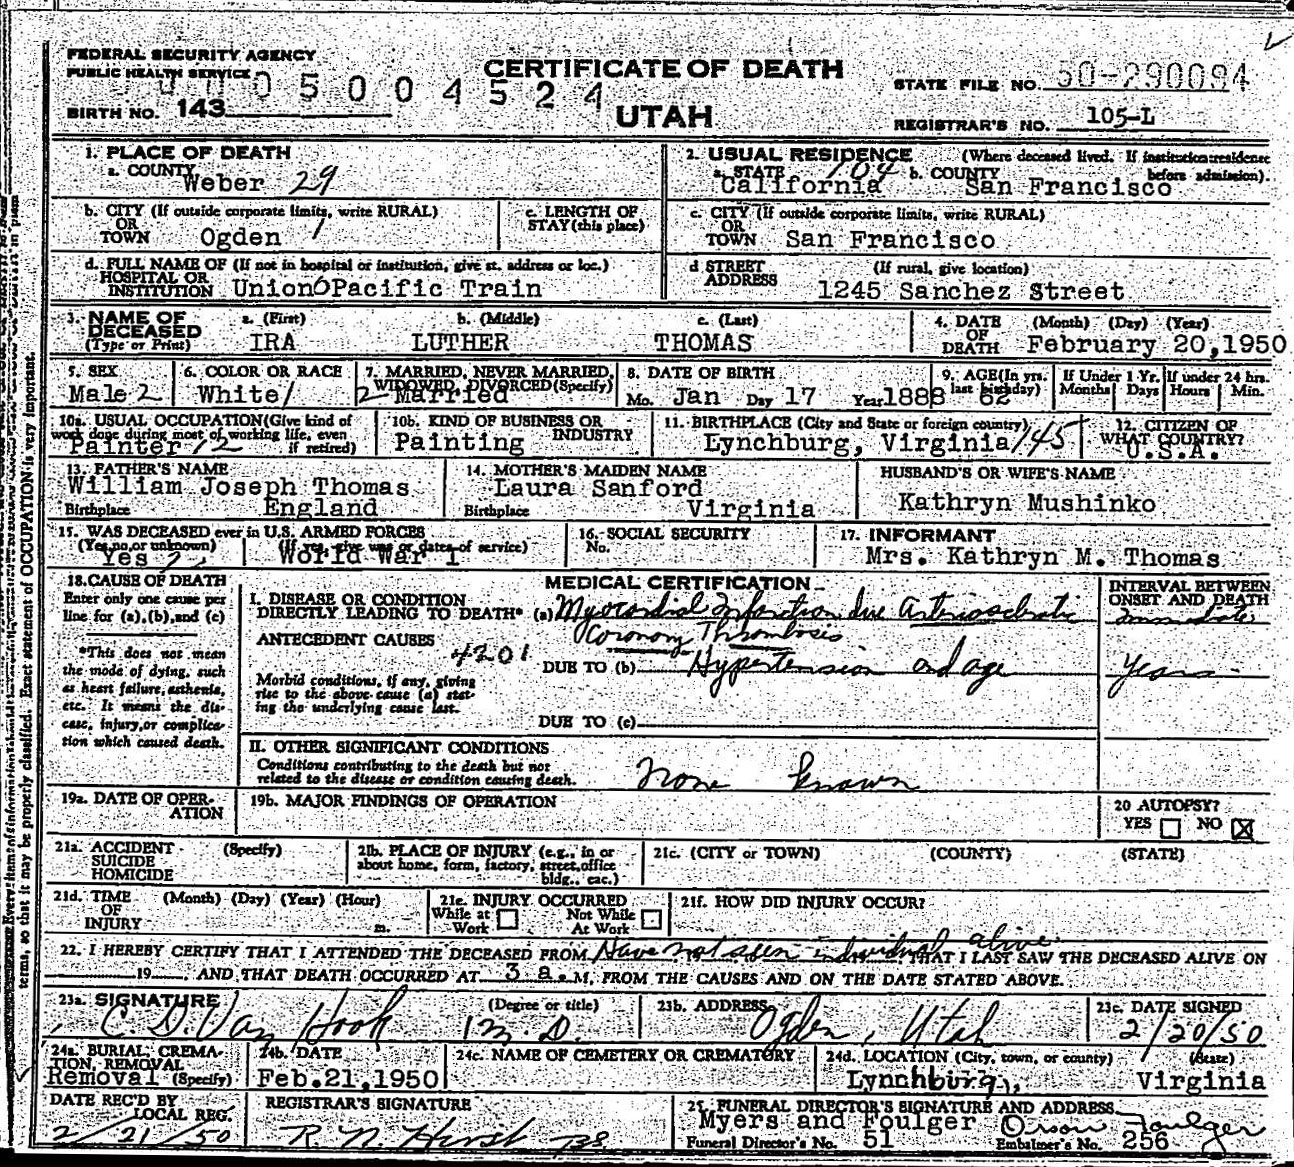 FEDERAL SECURITY AGENCY
PUBLIC HEALTH SERVICE
005004524
BIRTH NO. 143
CERTIFICATE OF DEATH
UTAH
STATE FILE NO. 50-290094
REGISTRAR'S NO. 105-L
1. PLACE OF DEATH
a. COUNTY Weber 29
2. USUAL RESIDENCE (Where deceased lived. If institution: residence before admission).
a. STATE California 104 b. COUNTY San Francisco
b. CITY (If outside corporate limits, write RURAL) OR TOWN Ogden 1
c. LENGTH OF STAY (this place)
c. CITY (If outside corporate limits, write RURAL) OR TOWN San Francisco
d. FULL NAME OF (If not in hospital or institution, give st. address or loc.) HOSPITAL OR INSTITUTION Union Pacific Train
d STREET ADDRESS (If rural, give location) 1245 Sanchez Street
3. NAME OF DECEASED (Type or Print) a. (First) b. (Middle) c. (Last)
IRA LUTHER THOMAS
4. DATE OF DEATH (Month) (Day) (Year) February 20, 1950
5. SEX Male 2
6. COLOR OR RACE White 1
7. MARRIED, NEVER MARRIED, WIDOWED, DIVORCED (Specify) 2 Married
8. DATE OF BIRTH Mo. Jan Day 17 Year 1888
9. AGE (In yrs. last birthday) 62
If Under 1 Yr. Months Days
If under 24 hrs. Hours Min.
10a. USUAL OCCUPATION (Give kind of work done during most of working life, even if retired) Painter 12
10b. KIND OF BUSINESS OR INDUSTRY Painting
11. BIRTHPLACE (City and State or foreign country) Lynchburg, Virginia 145
12. CITIZEN OF WHAT COUNTRY? U.S.A.
13. FATHER'S NAME William Joseph Thomas
Birthplace England
14. MOTHER'S MAIDEN NAME Laura Sanford
Birthplace Virginia
HUSBAND'S OR WIFE'S NAME
Kathryn Mushinko
15. WAS DECEASED ever in U.S. ARMED FORCES
(Yes, no, or unknown) Yes (If yes, give war or dates of service) World War 1
16. SOCIAL SECURITY No.
17. INFORMANT
Mrs. Kathryn M. Thomas
18. CAUSE OF DEATH
Enter only one cause per line for (a), (b), and (c)
*This does not mean the mode of dying, such as heart failure, asthenia, etc. It means the disease, injury, or complication which caused death.
MEDICAL CERTIFICATION
I. DISEASE OR CONDITION DIRECTLY LEADING TO DEATH* (a) Myocardial Infarction due Arteriosclerotic
Coronary Thrombosis
ANTECEDENT CAUSES 4201
DUE TO (b) Hypertension and age
Morbid conditions, if any, giving rise to the above cause (a) stating the underlying cause last.
DUE TO (c)
INTERVAL BETWEEN ONSET AND DEATH
Immediate
Years
II. OTHER SIGNIFICANT CONDITIONS
Conditions contributing to the death but not related to the disease or condition causing death. None known
19a. DATE OF OPERATION
19b. MAJOR FINDINGS OF OPERATION
20 AUTOPSY?
YES NO X
21a. ACCIDENT SUICIDE HOMICIDE (Specify)
21b. PLACE OF INJURY (e.g., in or about home, form, factory, street, office bldg., eac.)
21c. (CITY or TOWN) (COUNTY) (STATE)
21d. TIME OF INJURY (Month) (Day) (Year) (Hour) m.
21e. INJURY OCCURRED
While at Work Not While At Work
21f. HOW DID INJURY OCCUR?
22. I HEREBY CERTIFY THAT I ATTENDED THE DECEASED FROM Have not seen individual alive. THAT I LAST SAW THE DECEASED ALIVE ON
19 , AND THAT DEATH OCCURRED AT 3 a. M, FROM THE CAUSES AND ON THE DATE STATED ABOVE.
23a. SIGNATURE (Degree or title)
C. D. Van Hook M. D.
23b. ADDRESS Ogden, Utah
23c. DATE SIGNED 2/20/50
24a. BURIAL, CREMATION, REMOVAL (Specify) Removal
24b. DATE Feb. 21, 1950
24c. NAME OF CEMETERY OR CREMATORY
24d. LOCATION (City, town, or county) (State)
Lynchburg, Virginia
DATE REC'D BY LOCAL REG. 2/21/50
REGISTRAR'S SIGNATURE
25. FUNERAL DIRECTOR'S SIGNATURE AND ADDRESS
Myers and Foulger Orson Foulger
Funeral Director's No. 51 Embalmer's No. 256
terms, so that it may be properly classified. Exact statement of OCCUPATION is very important.